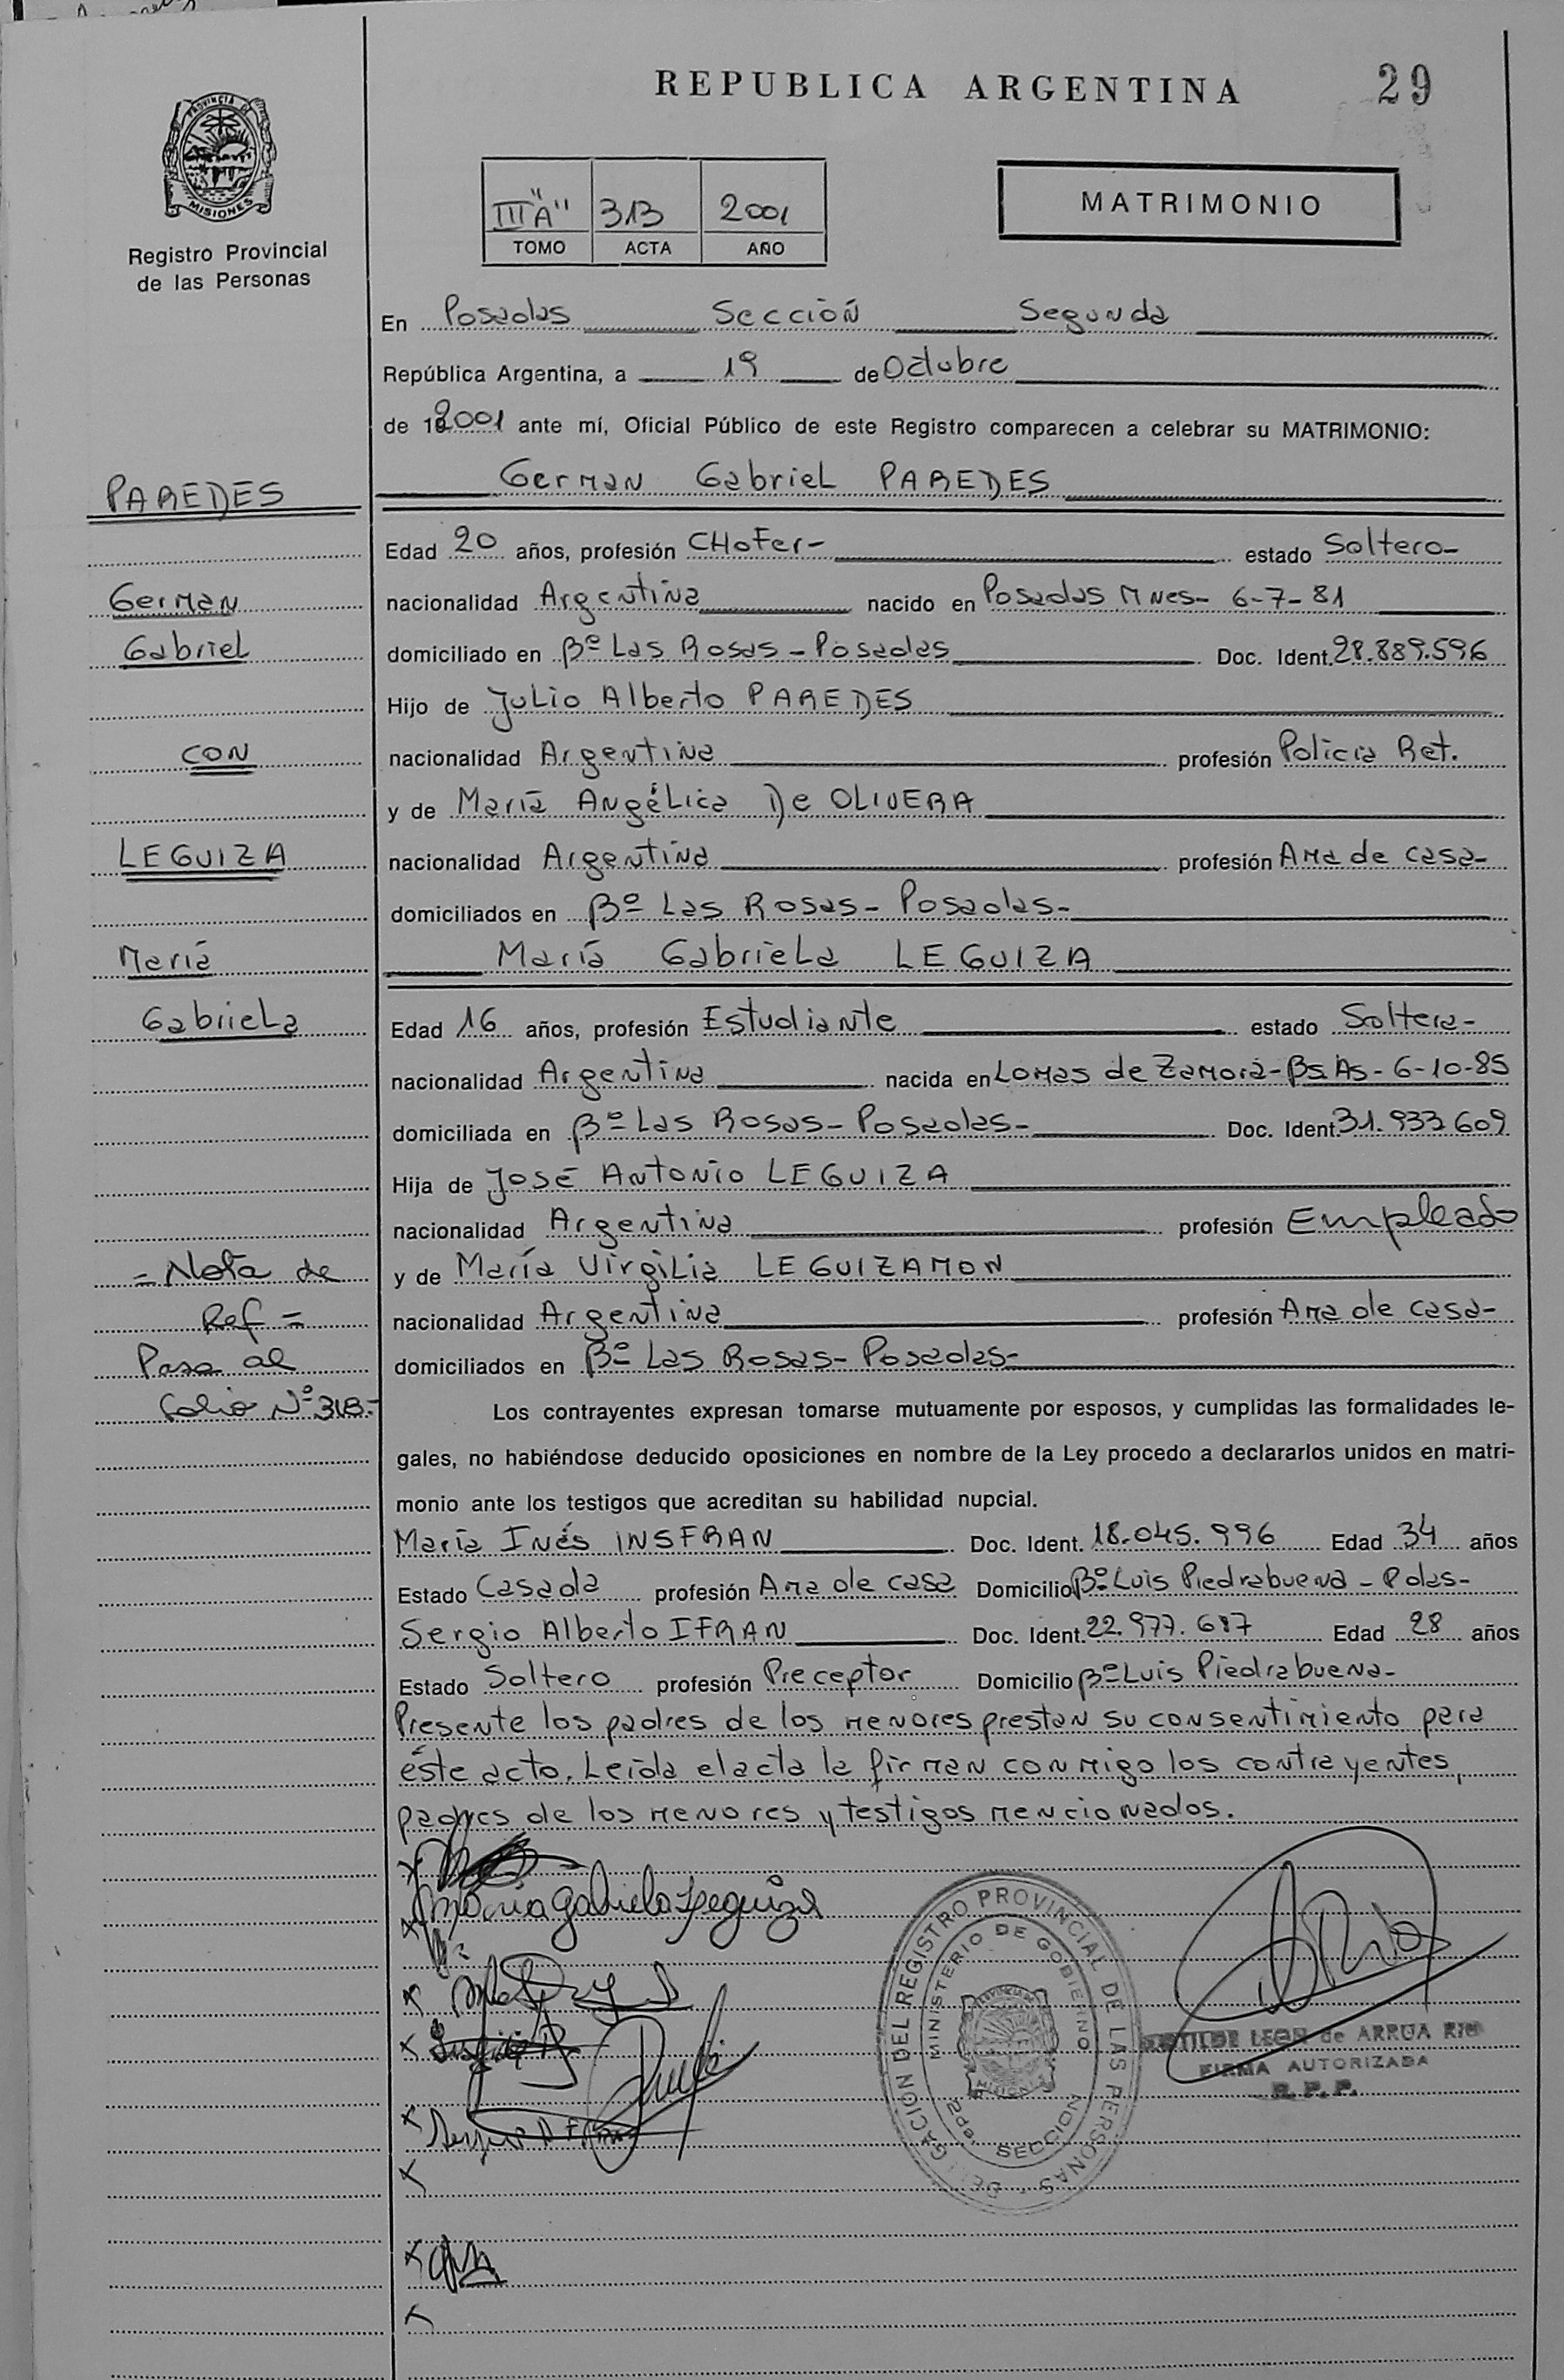 REPUBLICA ARGENTINA 29
PROVINCIA DE
MISIONES
Registro Provincial
de las Personas
III "A" 313 2001
TOMO ACTA AÑO
MATRIMONIO
En Posadas Sección Segunda
República Argentina, a 19 de Octubre
de 2001 ante mí, Oficial Público de este Registro comparecen a celebrar su MATRIMONIO:
PAREDES
German Gabriel PAREDES
Edad 20 años, profesión CHOFer- estado Soltero-
German
nacionalidad Argentina nacido en Posadas Mnes- 6-7-81
Gabriel
domiciliado en Bº Las Rosas - Posadas Doc. Ident. 28.889.596
Hijo de Julio Alberto PAREDES
CON
nacionalidad Argentina profesión Policia Ret.
y de María Angélica De OLIVERA
LEGUIZA
nacionalidad Argentina profesión Ama de casa-
domiciliados en Bº Las Rosas- Posadas-
María
María Gabriela LEGUIZA
Gabriela
Edad 16 años, profesión Estudiante estado Soltera-
nacionalidad Argentina nacida en Lomas de Zamora- Bs.As- 6-10-85
domiciliada en Bº Las Rosas- Posadas- Doc. Ident. 31.933.609
Hija de José Antonio LEGUIZA
nacionalidad Argentina profesión Empleado
= Nota de
y de María Virgilia LEGUIZAMON
Ref =
nacionalidad Argentina profesión Ama de casa-
Pasa al
domiciliados en Bº Las Rosas- Posadas-
folio Nº 318.-
Los contrayentes expresan tomarse mutuamente por esposos, y cumplidas las formalidades le-
gales, no habiéndose deducido oposiciones en nombre de la Ley procedo a declararlos unidos en matri-
monio ante los testigos que acreditan su habilidad nupcial.
María Inés INSFRAN Doc. Ident. 18.045.996 Edad 34 años
Estado Casada profesión Ama de casa Domicilio Bº Luis Piedrabuena - Pdas-
Sergio Alberto IFRAN Doc. Ident. 22.977.687 Edad 28 años
Estado Soltero profesión Preceptor Domicilio Bº Luis Piedrabuena-
Presente los padres de los menores prestan su consentimiento para
éste acto. Leida el acta la firman conmigo los contrayentes,
padres de los menores y testigos mencionados.
María Gabriela Leguiza
DELEGACION DEL REGISTRO PROVINCIAL DE LAS PERSONAS
MINISTERIO DE GOBIERNO
SECCION
LEON de ARRUA
FIRMA AUTORIZADA
R. P. P.